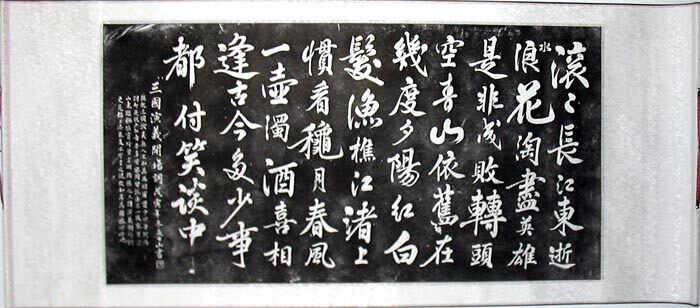 滚〻長江東逝
水浪花淘盡英雄
是非成敗轉頭
空青山依舊在
幾度夕陽紅白
髮漁樵江渚上
慣看穐月春風
一壺濁酒喜相
逢古今多少事
都付笑谈中
三國演義開場詞戊寅年